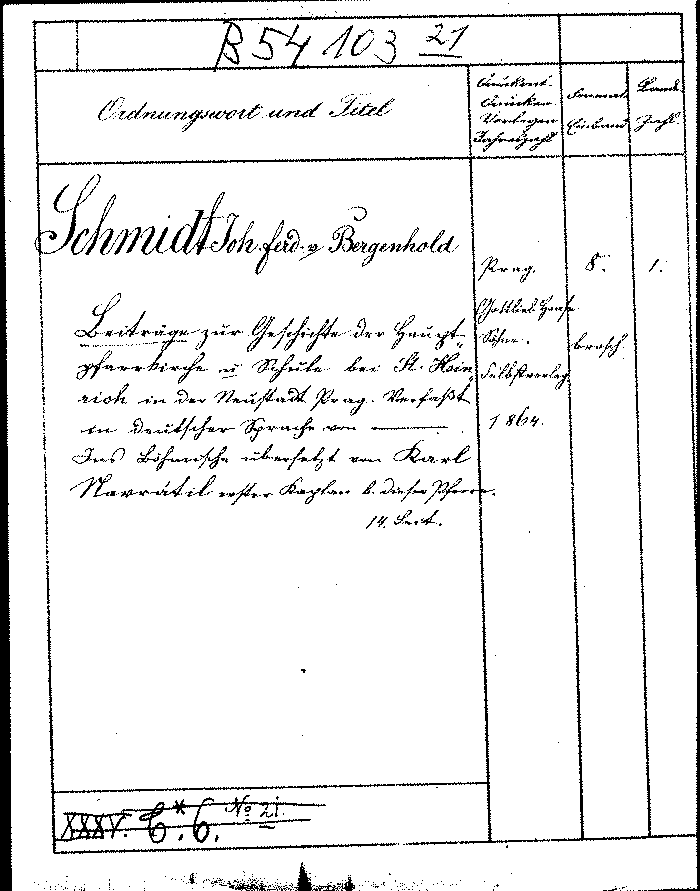 B 54 103 21
Ordnungswort und Titel
Druckort
Drucker
Verleger
Jahreszahl
Format
Einband
Bände
Zahl.
Schmidt Joh. ferd. v Bergenhold
Beiträge zur Geschichte der Haupt-
pfarrkirche u Schule bei St. Hein
rich in der Neustadt Prag. Verfaßt
in deutscher Sprache von ———
Ins Böhmische übersetzt von Karl
Navrátil erster Kaplan b. dieser Pfarre.
14.
Prag.
Gottlieb Haase
Söhne.
Selbstverlag
1864.
8.
brosch.
1.
XXXV. C.* 6. No 21.